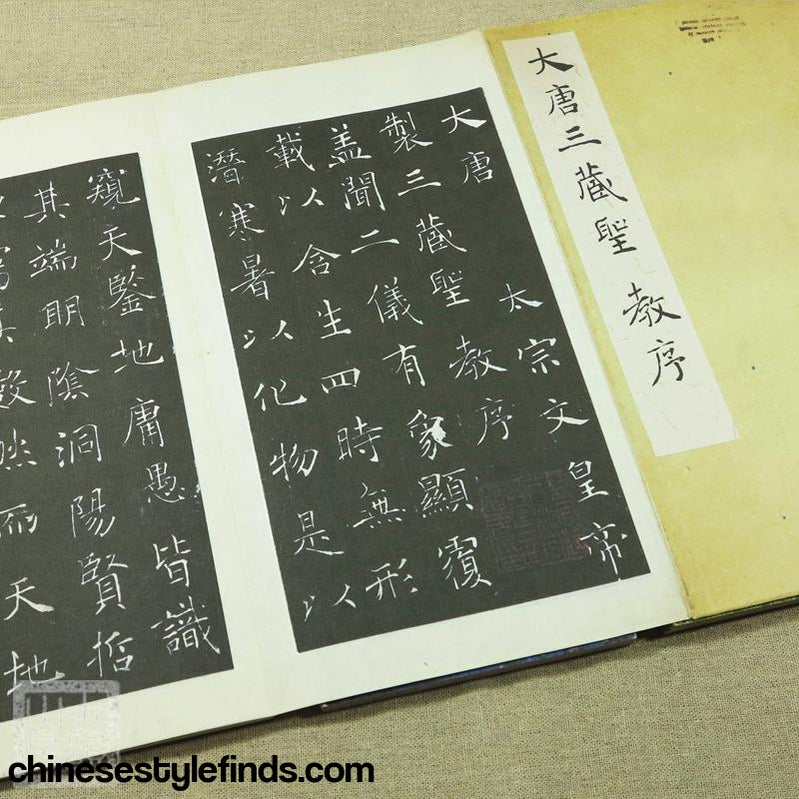 大唐三藏聖教序
大唐太宗文皇帝
製三藏聖教序
盖聞二儀有象顯覆
載以含生四時無形
潛寒暑以化物是以
窺天鑒地庸愚皆識
其端明陰洞陽賢哲
數然而天地
chinesestylefinds.com